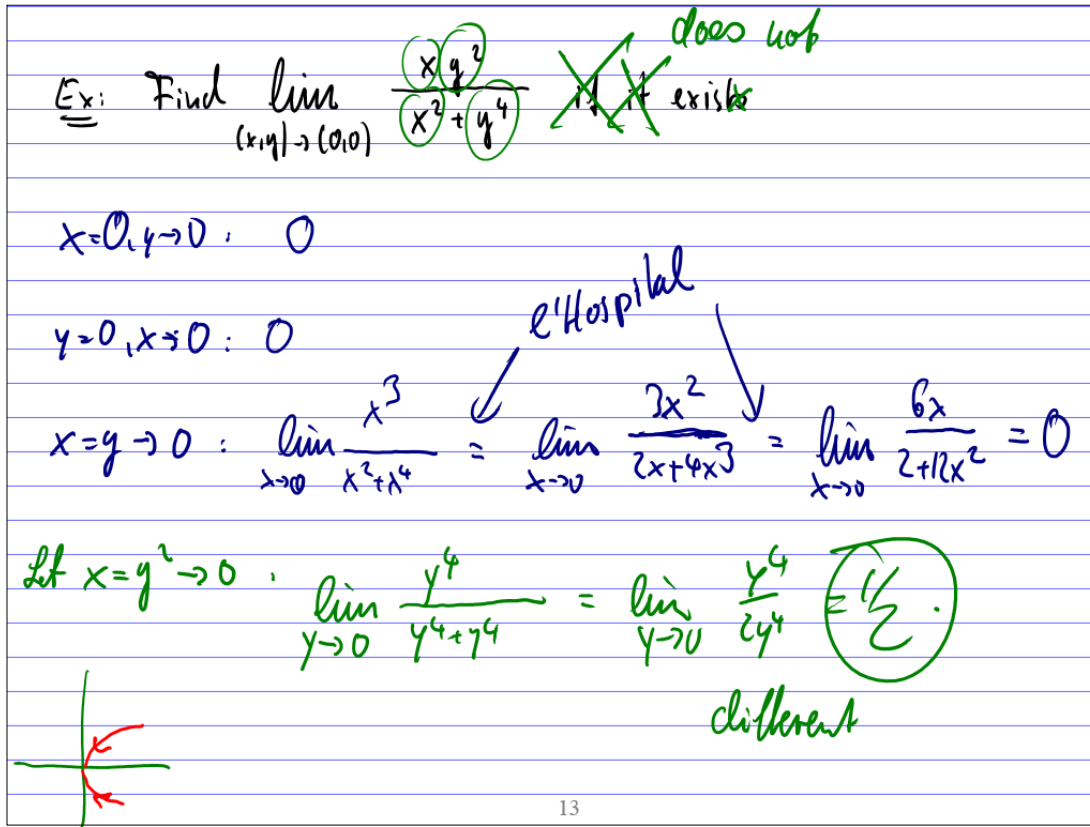 does not
Ex: Find lim (x,y)→(0,0) xy²/(x²+y⁴) if it exists
x=0, y→0 : 0
y=0, x→0 : 0
l'Hospital
x=y→0 : lim x→0 x³/(x²+x⁴) = lim x→0 3x²/(2x+4x³) = lim x→0 6x/(2+12x²) = 0
Let x=y²→0 : lim y→0 y⁴/(y⁴+y⁴) = lim y→0 y⁴/2y⁴ = 1/2.
different
13